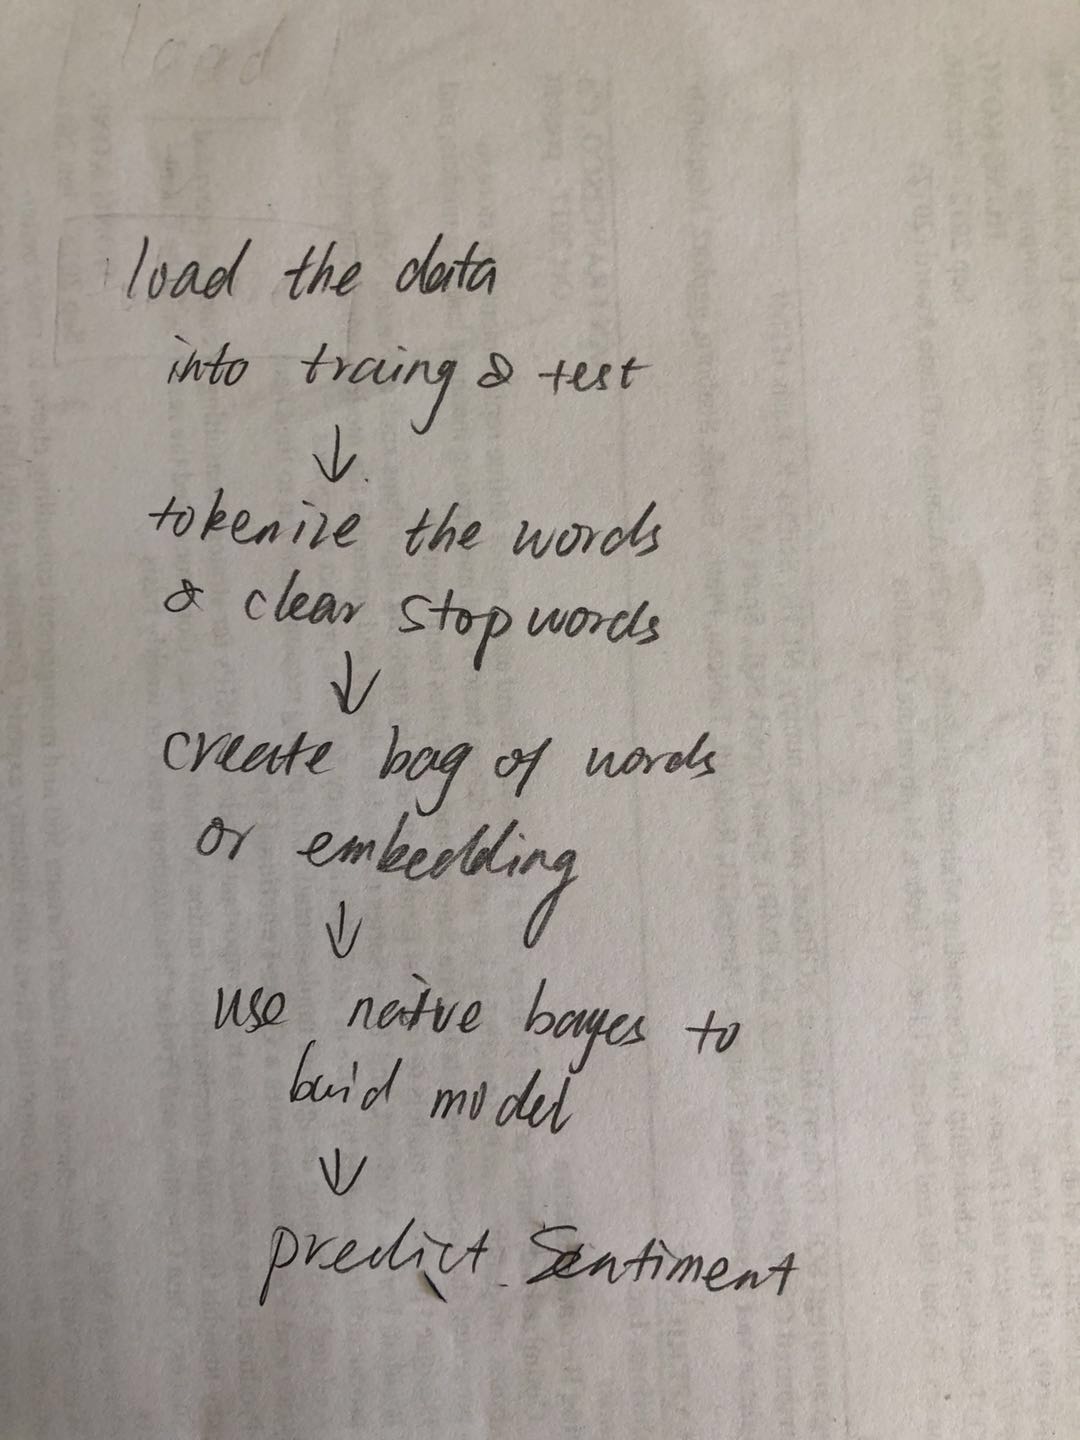 load
load the data
into traing & test
↓
tokenize the words
& clear stopwords
↓
create bag of words
or embedding
↓
use naive bayes to
buid model
↓
predict Sentiment